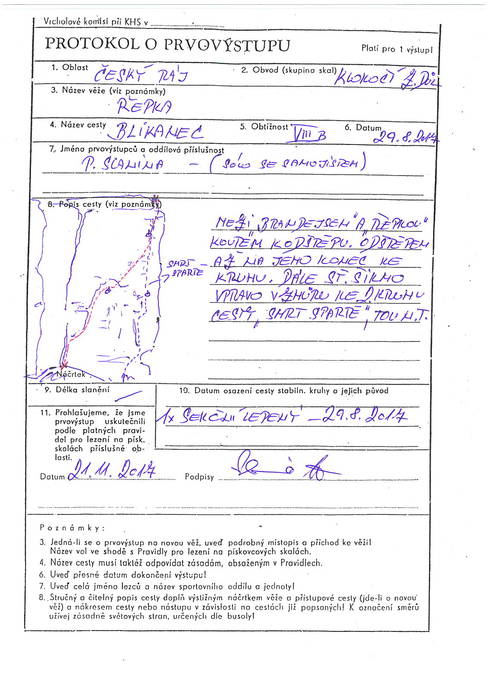 Vrcholové komisi při KHS v
PROTOKOL O PRVOVÝSTUPU
Platí pro 1 výstup!
1. Oblast ČESKÝ RÁJ
2. Obvod (skupina skal) KLOKOČÍ
3. Název věže (viz poznámky)
ŘEPKA
4. Název cesty BLIKANEC
5. Obtížnost VIII B
6. Datum 29.8.2017
7. Jména prvovýstupců a oddílová příslušnost
P. SLANINA – (SÓLO SE SAMOJIŠTĚM)
8. Popis cesty (viz poznámky)
SMRT
SPARTĚ
Náčrtek
MEZI „BRANDEJSEM" A „ŘEPKOU"
KOUTEM K ODŠTĚPU. ODŠTĚPEM
AŽ NA JEHO KONEC KE
KRUHU. DÁLE ST. ŠIKMO
VPRAVO VZHŮRU KE 2. KRUHU
CESTY „SMRT SPARTĚ", TOU N.T.
9. Délka slanění
10. Datum osazení cesty stabiln. kruhy a jejich původ
1x SEKČNÍ LEPENÝ – 29.8.2017
11. Prohlašujeme, že jsme
prvovýstup uskutečnili
podle platných pravi-
del pro lezení na písk.
skalách příslušné ob-
lasti.
Datum 21.11.2017
Podpisy
Poznámky:
3. Jedná-li se o prvovýstup na novou věž, uveď podrobný místopis a příchod ke věži!
Název vol ve shodě s Pravidly pro lezení na pískovcových skalách.
4. Název cesty musí taktéž odpovídat zásadám, obsaženým v Pravidlech.
6. Uveď přesné datum dokončení výstupu!
7. Uveď celá jména lezců a název sportovního oddílu a jednoty!
8. Stručný a čitelný popis cesty doplň výstižným náčrtkem věže a přístupové cesty (jde-li o novou
věž) a nákresem cesty nebo nástupu v závislosti na cestách již popsaných! K označení směrů
užívej zásadně světových stran, určených dle busoly!